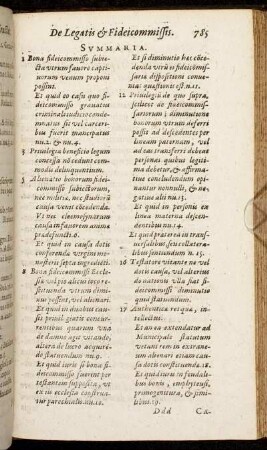 De Legatis & Fideicommissis. 785
SUMMARIA.
1 Bona fideicommisso subie-
cta utrum favore capti-
vorum venum proponi
possint.
Et quid eo casu quo fi-
deicommisso gravatus
criminalis iudicis conde-
mnatus sit vel carceri-
bus fuerit mancipatus
nu.2. & 4.
3 Privilegia beneficio legum
concessa nõ cedunt cómo
do delinquentium.
5 Alienatio bonorum fidei-
commisso subiectorum,
nec militiæ, nec studiorũ
causa venit concedenda.
Vt nec eleemosynarum
causa in fautorem anima
prædefuncti.6.
Et quid in causa dotis
conferenda virgini mo-
nasterio septa ingredienti.7.
8 Bona fideicommissi Ecclesia
vel pio alicui loco re-
stituenda utrum dimi
possent, vel alienari.
Et quid in dubio an
posit, si gratis concur-
rentibus quarum una
de damno agit vitando,
altera de lucro acquire-
do statuendum nu.9.
Et quid iuris si bona fi-
deicommisso fuerint per
testantem supposita, ut
ex iis ecclesia construa-
tur parochialis nu.10.
Et si diminutio hac cõce-
denda verè is fideicommis-
saria dispositioni conve-
niat quæstioni est.n.11.
12 Privilegii de quo supra,
scilicet de fideicommis-
sariorum; diminutione
ob causam dotis, vel ali-
ud pœnam, vel
ad eas transferri debeat
personas quibus legiti-
ma debetur, & affirma-
tive concludendum opi-
nantur nonnulli, & ne-
gative alii ab nu.13.
Et quid in personis ex
linea materna descen-
dentibus nu.14.
Et quid præterea in tran-
sversalibus, seu collatera-
libus sentiendum n.15.
16 Testatore vivente an vel
dotis causa, vel alteriùs
de ratione sit filii bona
fideicommissi diminutio
quid statuendum.
17 Authentica res quæ, in-
tellectus.
Et an ea extendatur ad
Municipale statutum
vetans rem alienari cau
sa dotis constituenda.18.
Et quid iuris in feudali-
bus bonis, emphyteusi,
primogenitura, & simi-
libus.19.
Ddd Ca-